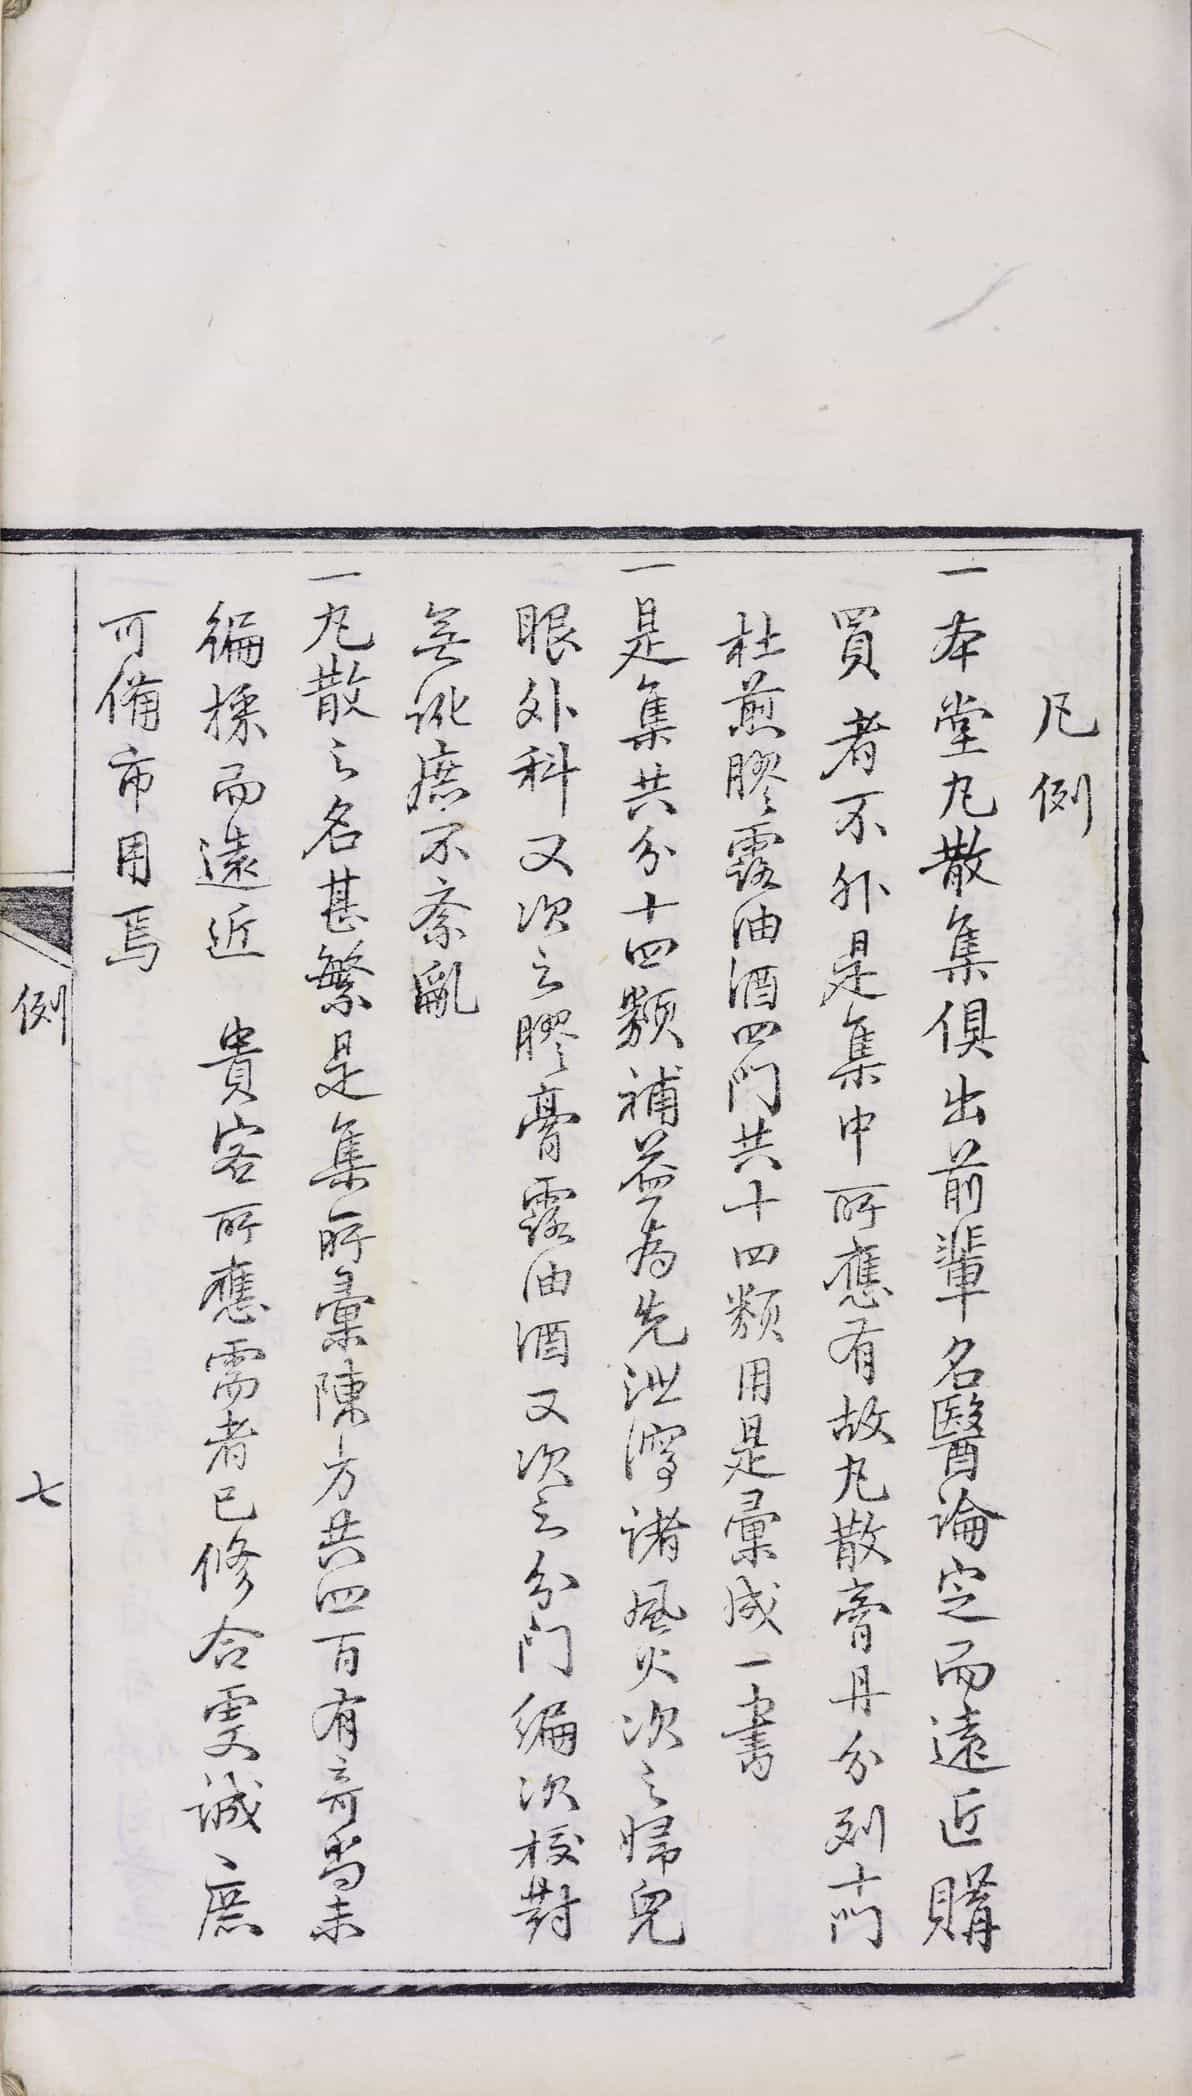 凡例
一本堂丸散集俱出前輩名醫論定而遠近購
買者不外是集中所應有故丸散膏丹分列十門
杜煎膠露油酒四門共十四類用是彙成一書
一是集共分十四類補益為先泄瀉諸風火次之婦兒
眼外科又次之膠膏露油酒又次之分門編次校對
無訛庶不紊亂
一丸散之名甚繁是集所彙陳方共四百有奇尚未
徧採而遠近 貴客所應需者已修合虔誠庶
可備市用焉
例
七